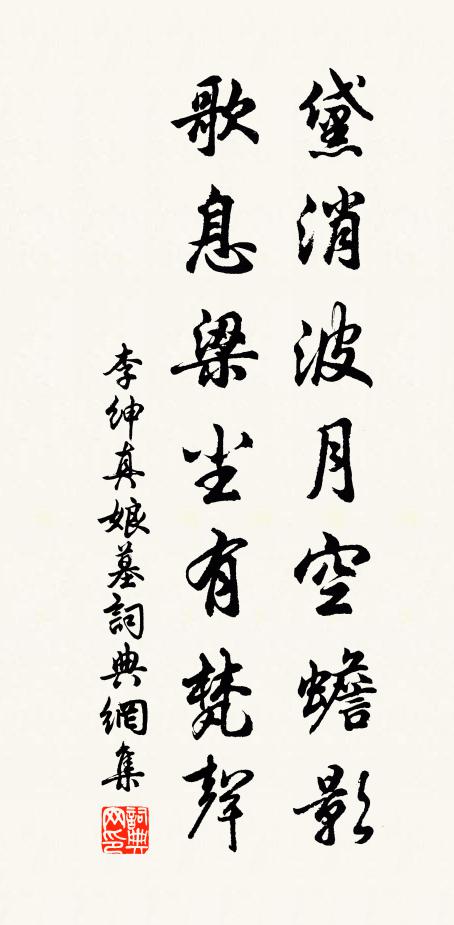 黛消波月空蟾影
歌息梁尘有梵聲
李紳真娘墓詞典網集
詞典网印